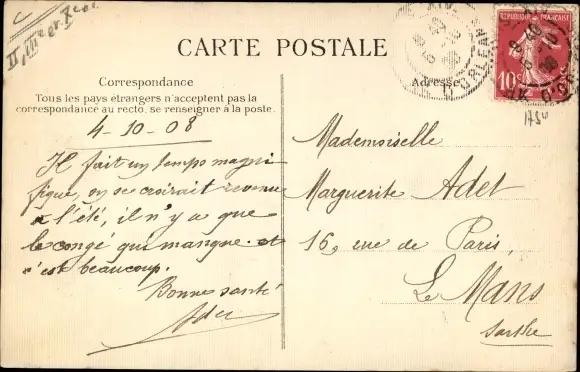 II, III
CARTE POSTALE
Correspondance
Tous les pays étrangers n'acceptent pas la
correspondance au recto, se renseigner à la poste.
Adresse
REPUBLIQUE FRANÇAISE
10c
ORLEAN
4-10-08
Il fait un temps magni
fique, on se croirait revenu
à l'été, il n'y a que
le congé qui manque. et
c'est beaucoup.
Bonne santé
Mademoiselle
Marguerite Adet
16, rue de Paris,
Le Mans
Sarthe